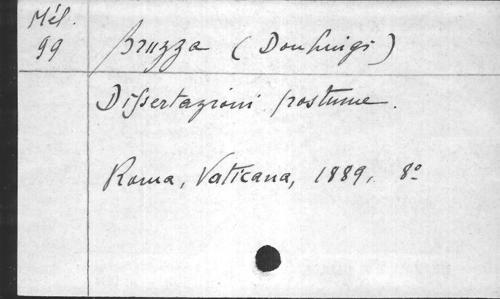 Mél.
99
Bruzza (Don Luigi)
Dissertazioni postume.
Roma, Vaticana, 1889, 8º